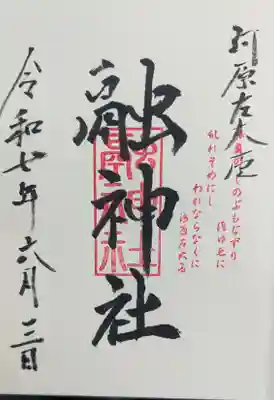 河原左大臣
しのぶもぢずり
誰ゆゑに
乱れそめにし
われならなくに
河原左大臣
融神社
令和七年六月三日